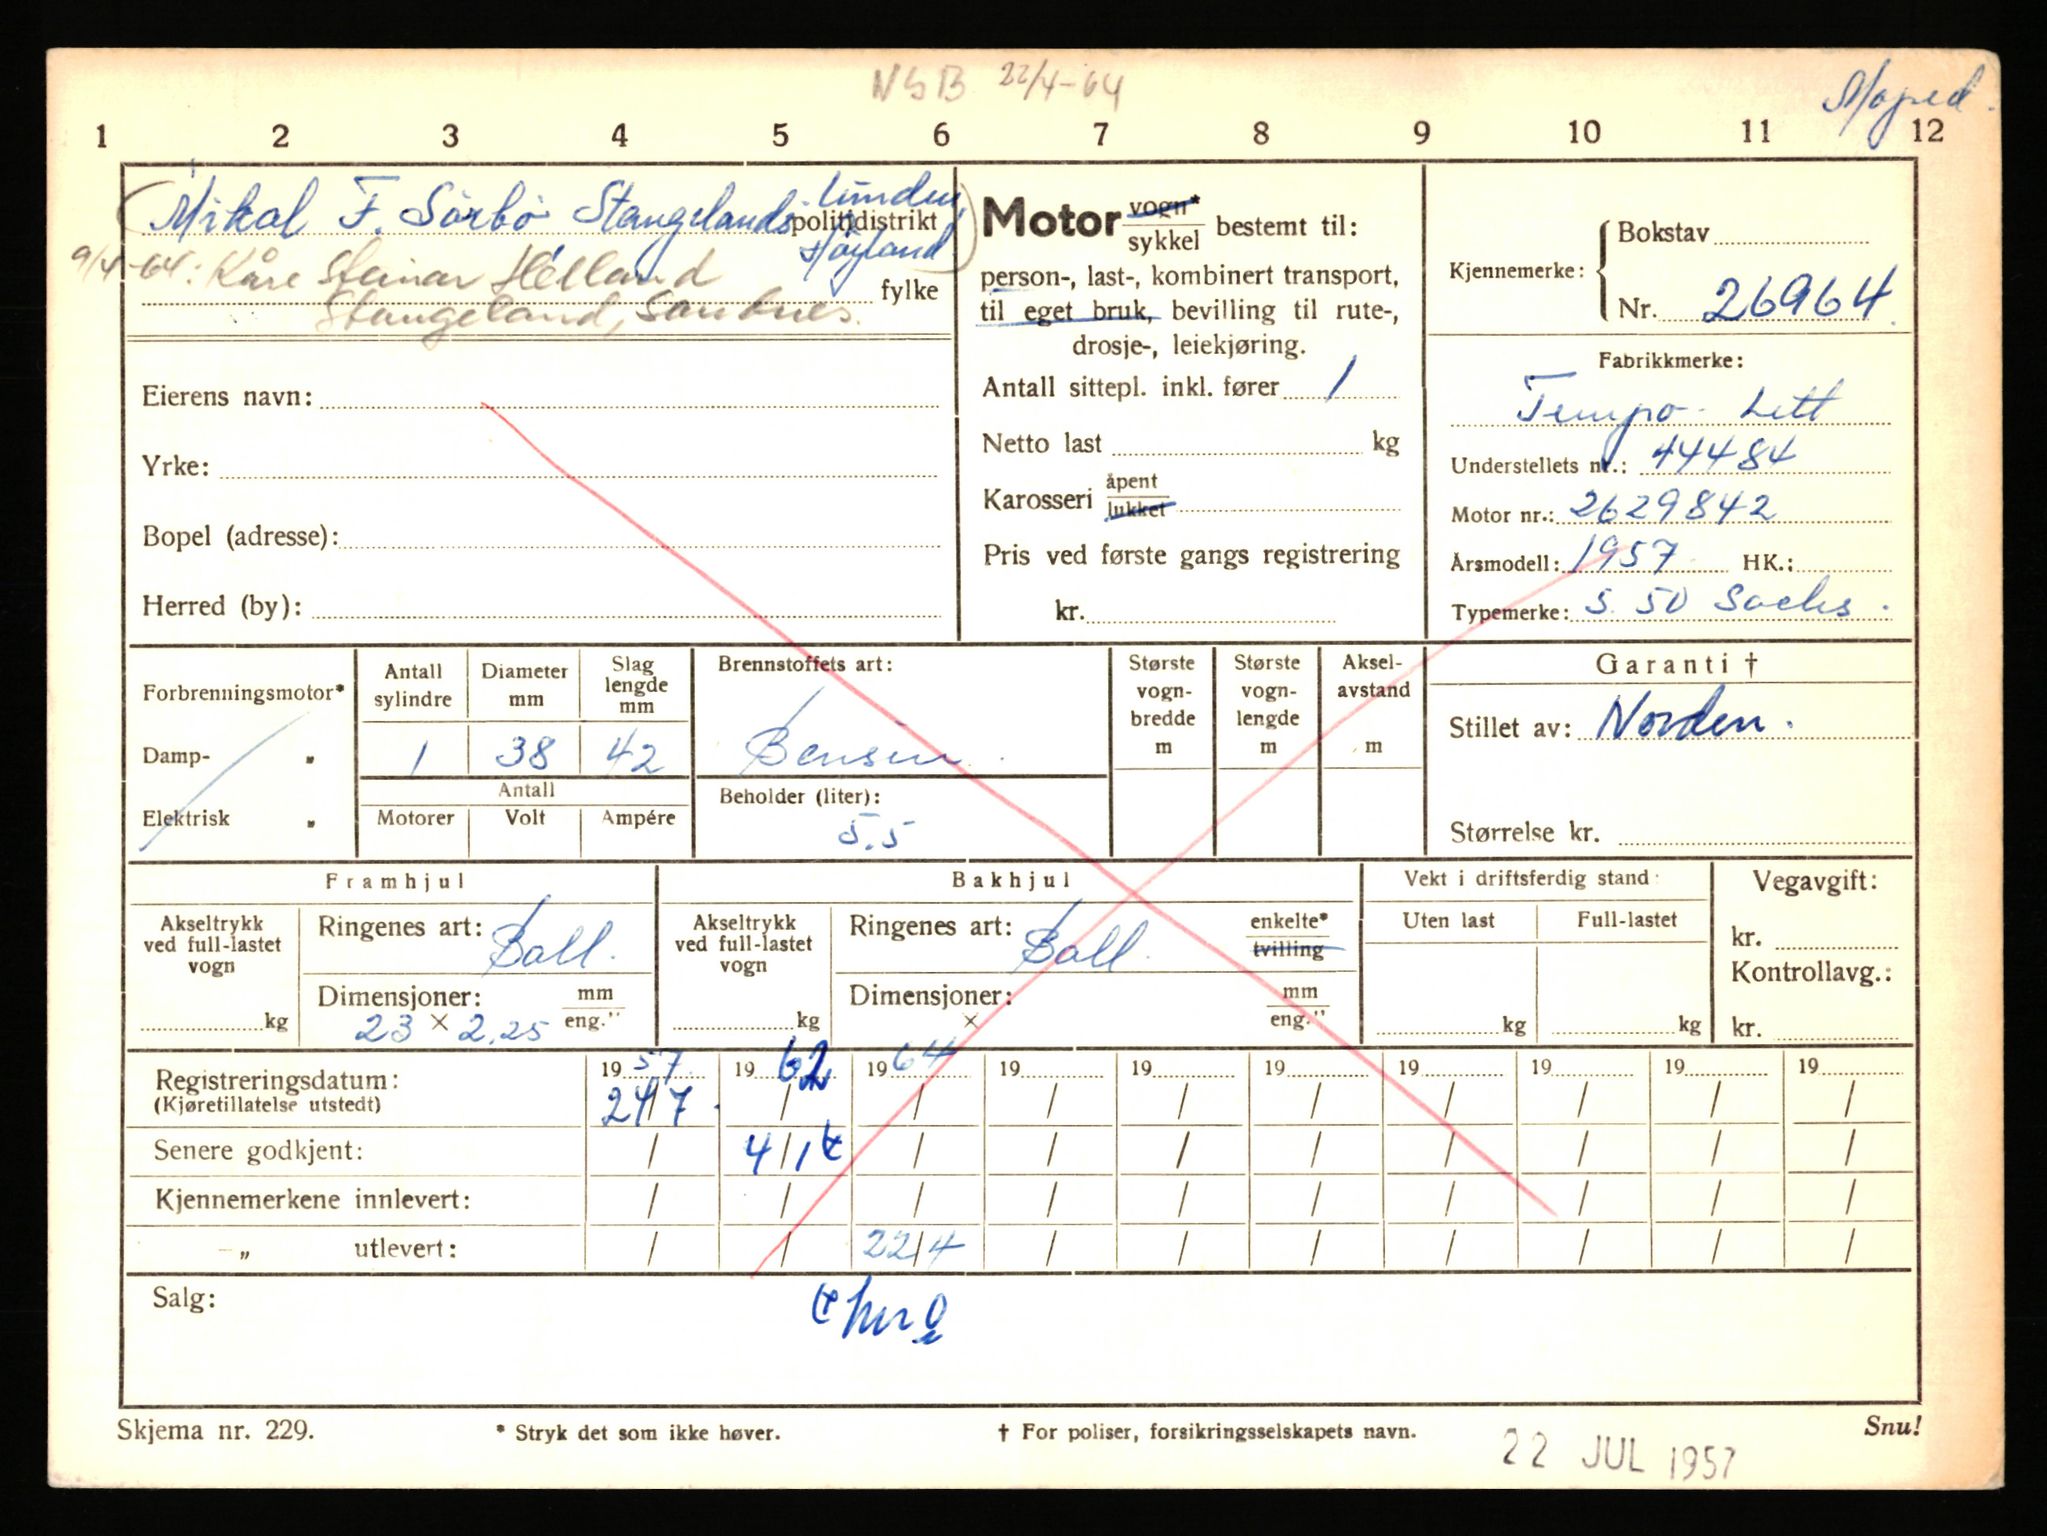 NSB 22/4-64
Moped.
1 2 3 4 5 6 7 8 9 10 11 12
Mikal F. Sörbö Stangelands
politidistrikt
Høyland
9/4-64: Kåre Steinar Helland
fylke
Stangeland, Sandnes.
Eierens navn:
Yrke:
Bopel (adresse):
Herred (by):
Motor vogn* sykkel bestemt til:
person-, last-, kombinert transport,
til eget bruk, bevilling til rute-,
drosje-, leiekjøring.
Antall sittepl. inkl. fører 1
Netto last kg
Karosseri åpent lukket
Pris ved første gangs registrering
kr.
Kjennemerke: Bokstav
Nr. 26964
Fabrikkmerke:
Tempo Lett
Understellets nr.: 44484
Motor nr.: 2629842
Årsmodell: 1957 HK.:
Typemerke: S. 50 Sachs.
Forbrenningsmotor*
Damp- „
Elektrisk „
Antall sylindre Diameter mm Slag lengde mm
1 38 42
Antall
Motorer Volt Ampére
Brennstoffets art:
Bensin
Beholder (liter):
5.5
Største vogn-bredde m
Største vogn-lengde m
Aksel-avstand m
Garanti †
Stillet av: Norden.
Størrelse kr.
Framhjul
Akseltrykk ved full-lastet vogn
kg
Ringenes art: Ball.
Dimensjoner: mm eng."
23 × 2.25
Bakhjul
Akseltrykk ved full-lastet vogn
kg
Ringenes art: Ball. enkelte* tvilling
Dimensjoner: × mm eng."
Vekt i driftsferdig stand
Uten last Full-lastet
kg kg
Vegavgift:
kr.
Kontrollavg.:
kr.
Registreringsdatum: 19 57 19 62 19 64 19 19 19 19 19 19 19
(Kjøretillatelse utstedt) 24/7. / / / / / / / / /
Senere godkjent: / 4/1 / / / / / / / /
Kjennemerkene innlevert: / / / / / / / / / /
— „ — utlevert: / / 22/4 / / / / / / /
Salg:
Skjema nr. 229.
* Stryk det som ikke høver.
† For poliser, forsikringsselskapets navn.
Snu!
22 JUL 1957